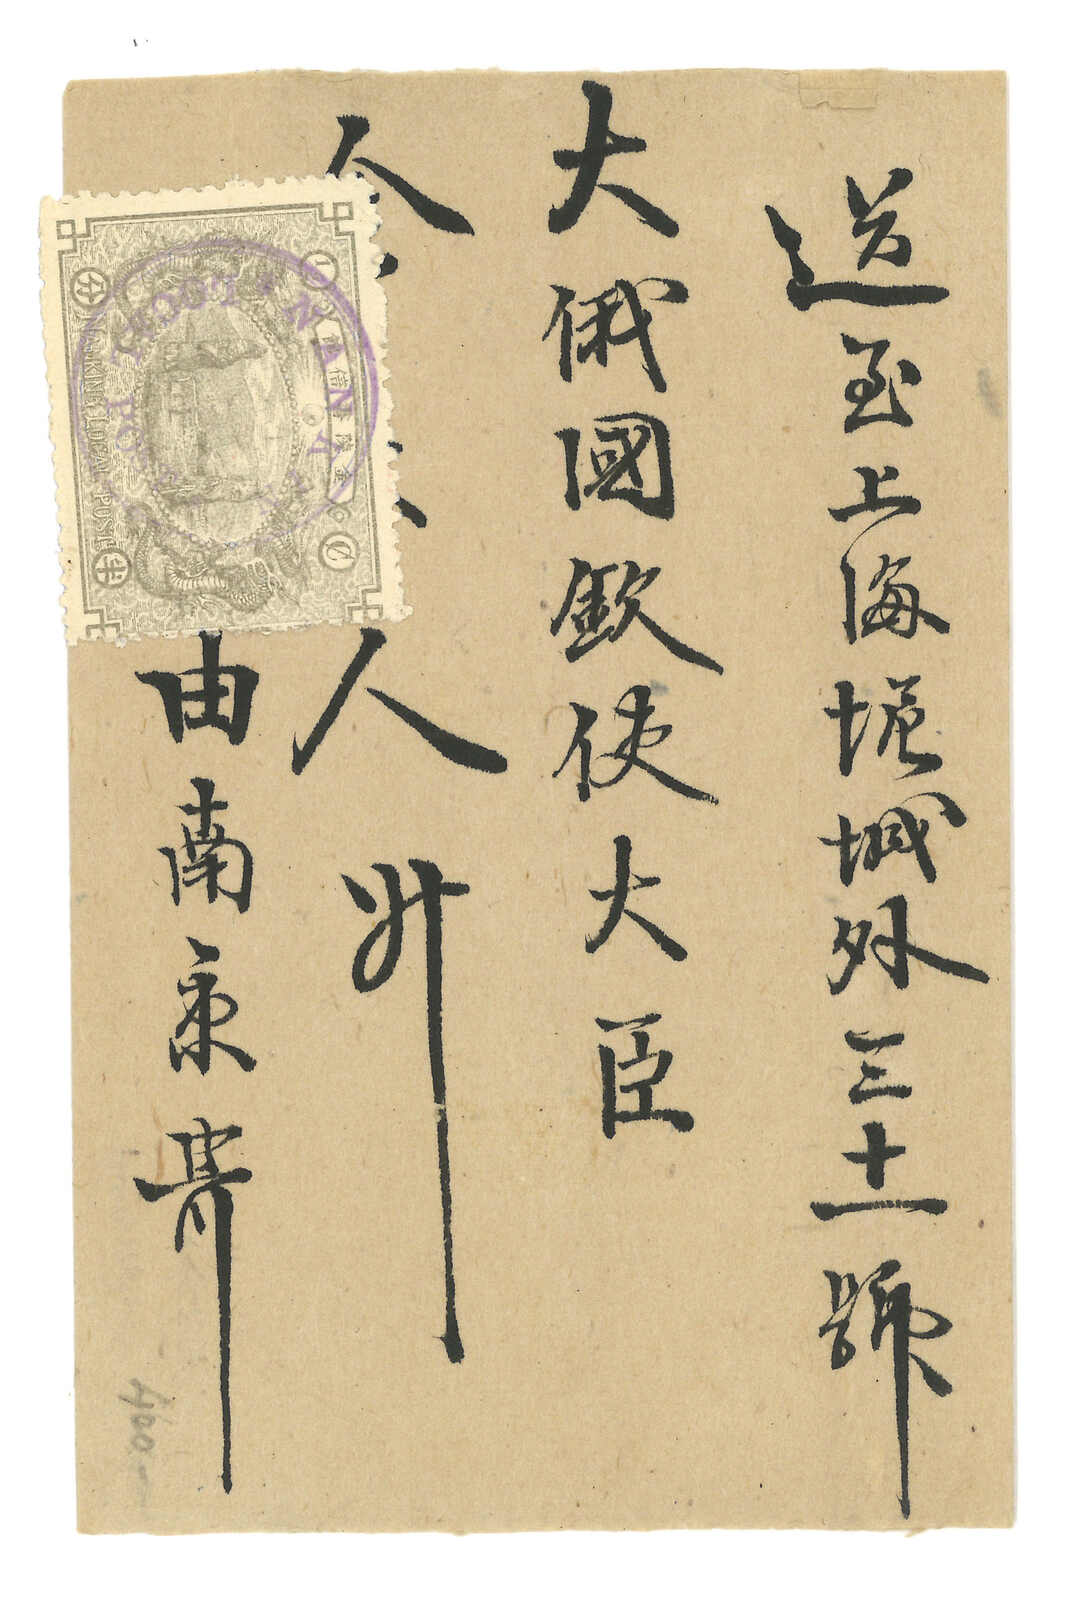 送至上海城外三十一號
大俄國欽使大臣
人升
由南京寄
NANKING LOCAL POST
NANKING
LOCAL POST
分
半
400